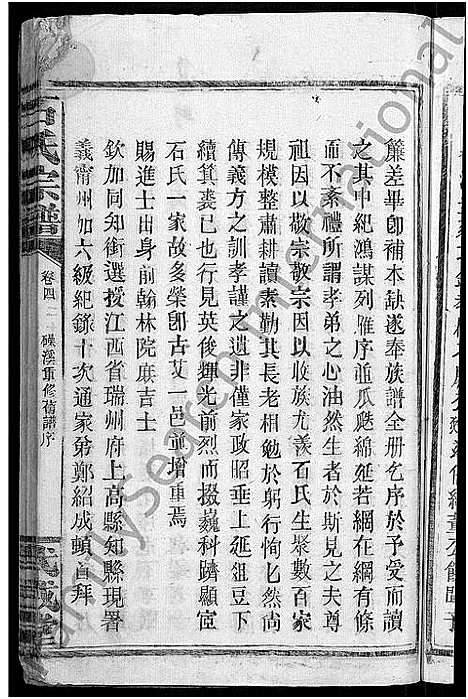 簾差畢卽補本缺遂奉族譜全册乞序於予受而讀
之其中紀鴻謀列雁序並瓜瓞綿延若綱在綱有條
而不紊禮所謂孝弟之心油然生者於斯見之夫尊
祖因以敬宗敬宗因以收族尤羨石氏生聚數百家
規模整肅耕讀素勤其長老相勉於躬行恂乜然尚
傳義方之訓孝謹之遺非僅家政昭垂上延俎豆下
續箕裘已也行見英俊輝光前烈而掇巍科躋顯宦
石氏一家故多榮卽古艾一邑並增重焉
賜進士出身前翰林院庶吉士
欽加同知銜選授江西省瑞州府上高縣知縣現署
義甯州加六級紀錄十次通家弟鄭紹成頓首拜
石氏宗譜
卷四
磜溪重修舊譜序
武威堂
FamilySearch International